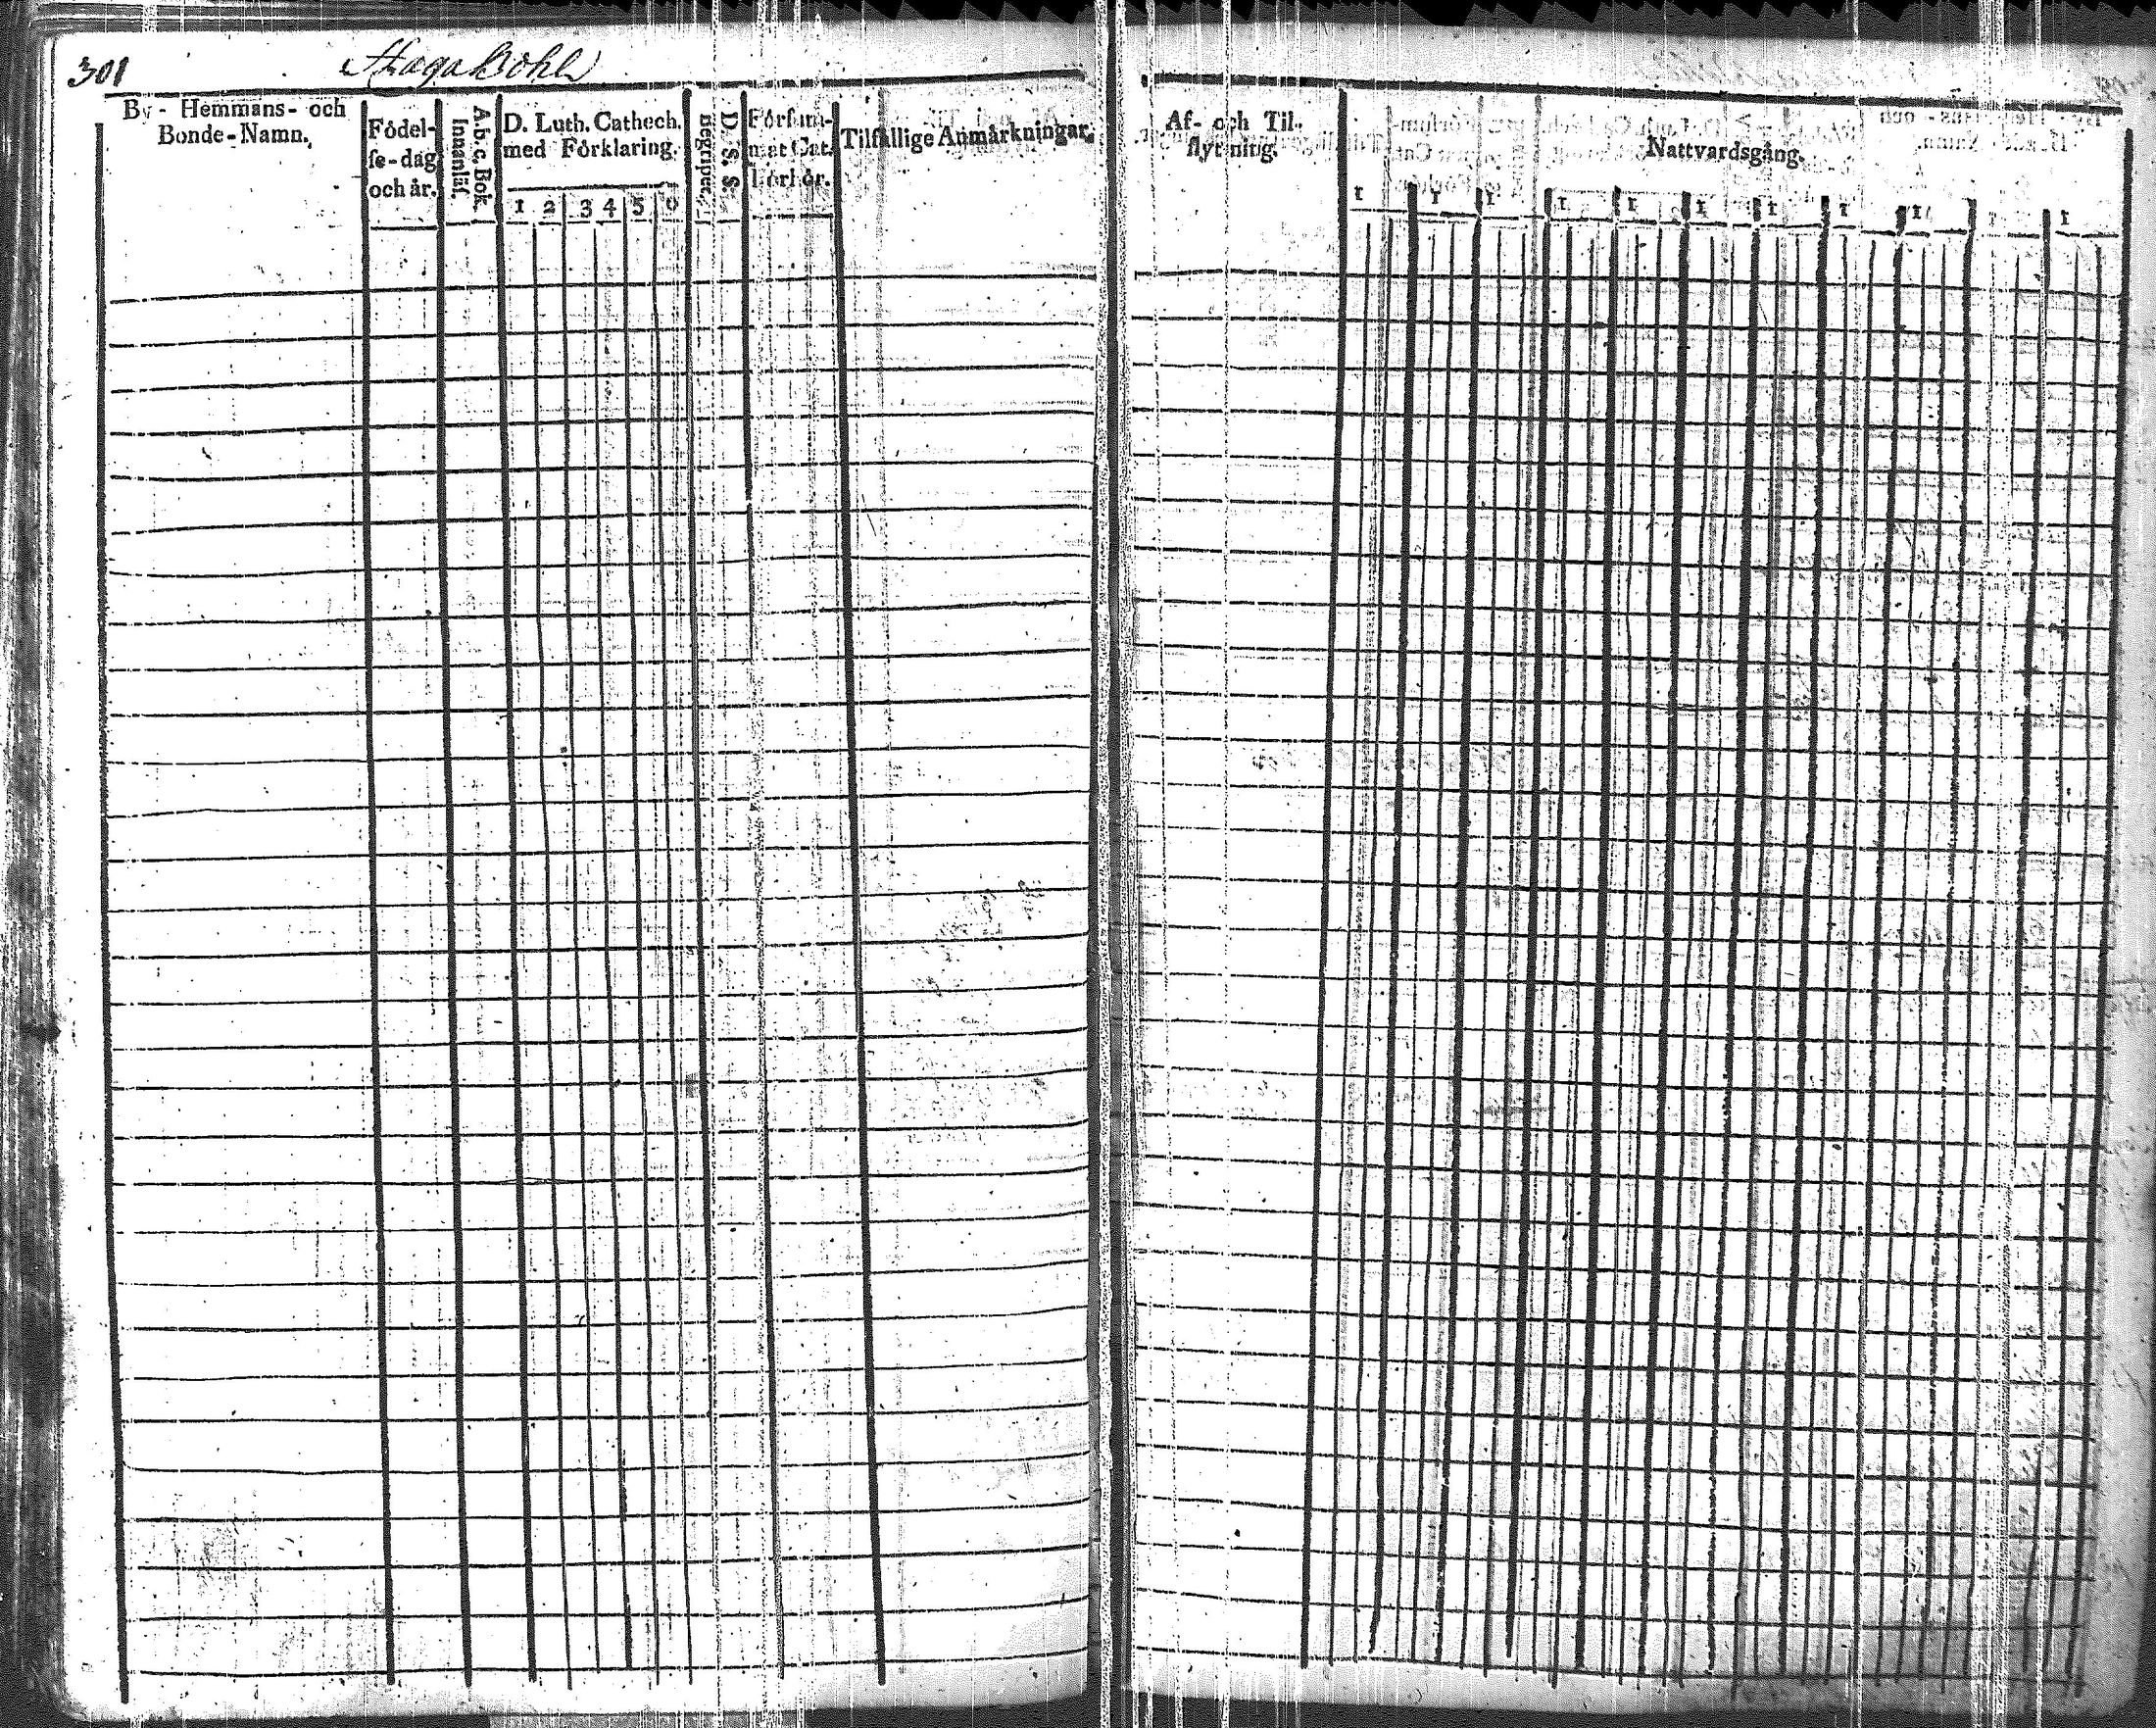 301 Haga Bohl
By- Hemmans- och
Bonde-Namn.
Födel-
se-dag
och år.
A.b.c. Bok.
Innanläs.
D. Luth. Cathech.
med Förklaring.
1 2 3 4 5 6
Begriper.
D. S. S.
Försum-
mat Cat.
Förhör.
Tilfällige Anmärkningar.
Af- och Til-
flyttning.
Nattvardsgång.
1 1 1 1 1 1 1 1 1 1 1